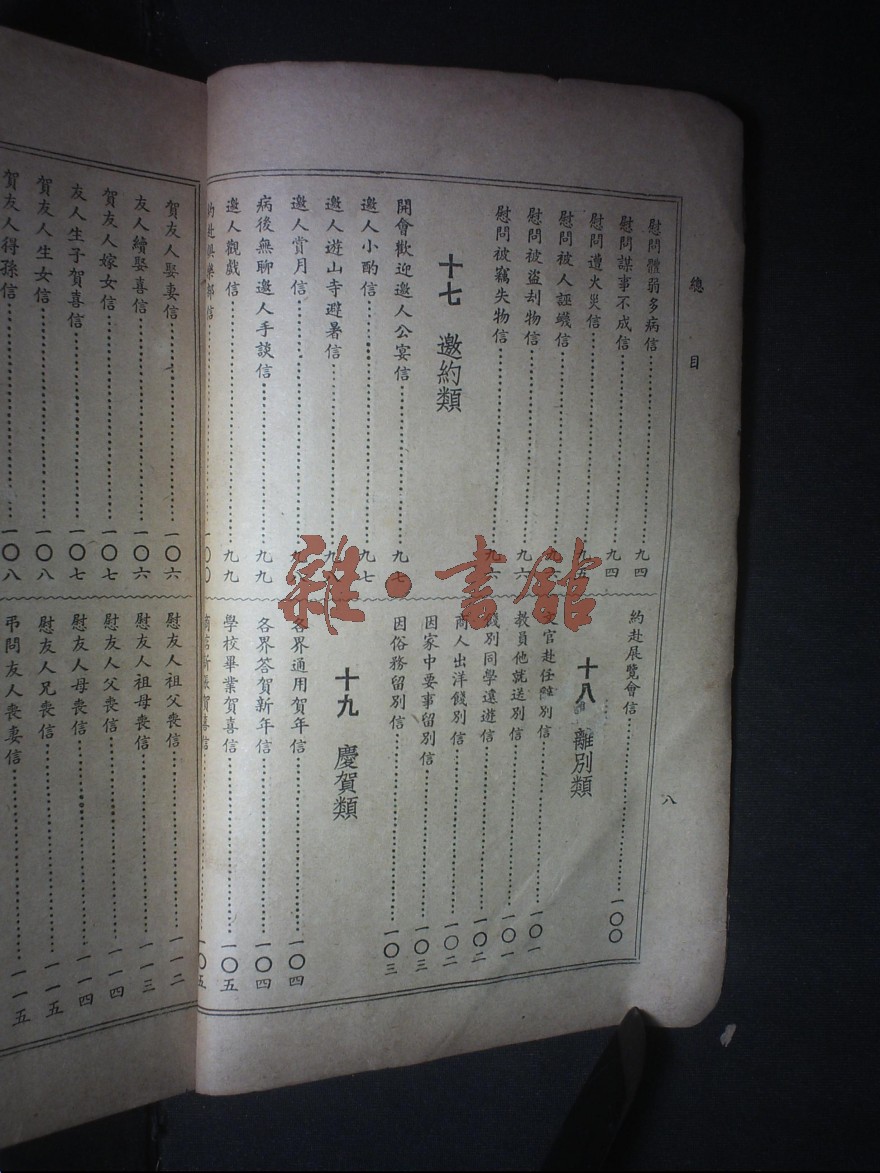 總目
八
慰問體弱多病信 九四
慰問謀事不成信 九四
慰問遭火災信 九五
慰問被人誣衊信
慰問被盜刦物信 九六
慰問被竊失物信 九六
十七 邀約類
開會歡迎邀人公宴信 九七
邀人小酌信 九七
邀人遊山寺避暑信 九八
邀人賞月信
病後無聊邀人手談信 九九
邀人觀戲信 九九
約赴俱樂部信 一〇〇
約赴展覽會信 一〇〇
十八 離別類
官赴任 別信 一〇一
教員他就送別信 一〇一
餞別同學遠遊信 一〇二
商人出洋餞別信 一〇二
因家中要事留別信 一〇三
因俗務留別信 一〇三
十九 慶賀類
各界通用賀年信 一〇四
各界答賀新年信 一〇四
學校畢業賀喜信 一〇五
商店新張賀喜信 一〇五
賀友人娶妻信 一〇六
友人續娶喜信 一〇六
賀友人嫁女信 一〇七
友人生子賀喜信 一〇七
賀友人生女信 一〇八
賀友人得孫信 一〇八
慰友人祖父喪信 一一二
慰友人祖母喪信 一一三
慰友人父喪信 一一四
慰友人母喪信 一一四
慰友人兄喪信 一一五
弔問友人喪妻信 一一五
雜·書館